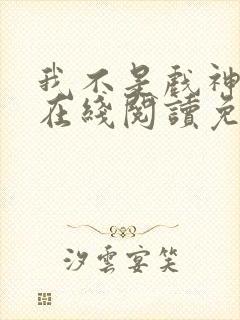 我不是戲神
在綫閱讀免
汐雲宴笑